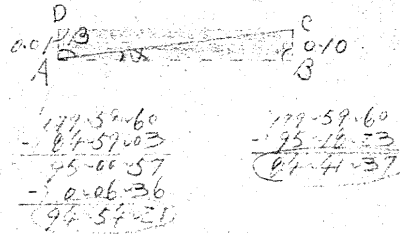 D
C
0.01
0.10
A
B
179-59-60
- 84-59-03
95-00-57
- 0-06-36
94-54-21
179-59-60
- 95-18-23
84-41-37